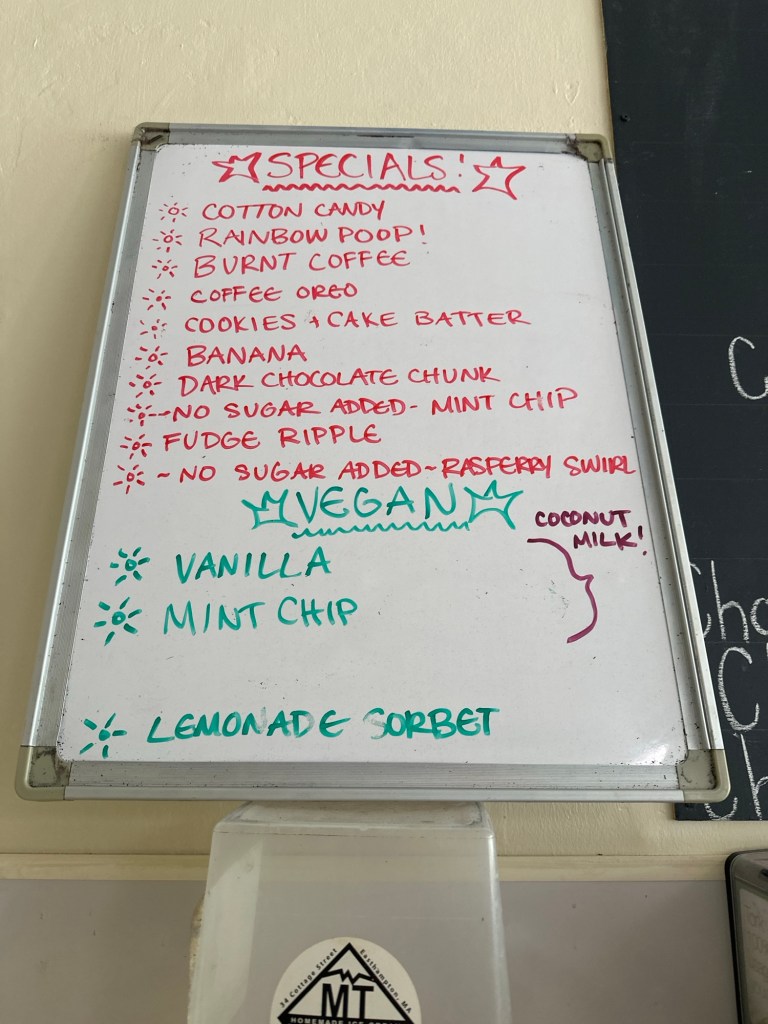 SPECIALS!
COTTON CANDY
RAINBOW POOP!
BURNT COFFEE
COFFEE OREO
COOKIES + CAKE BATTER
BANANA
DARK CHOCOLATE CHUNK
~NO SUGAR ADDED- MINT CHIP
FUDGE RIPPLE
~NO SUGAR ADDED~RASFERRY SWIRL
VEGAN
COCONUT
MILK!
VANILLA
MINT CHIP
LEMONADE SORBET
34 Cottage Street Easthampton, MA.
MT
HOMEMADE ICE